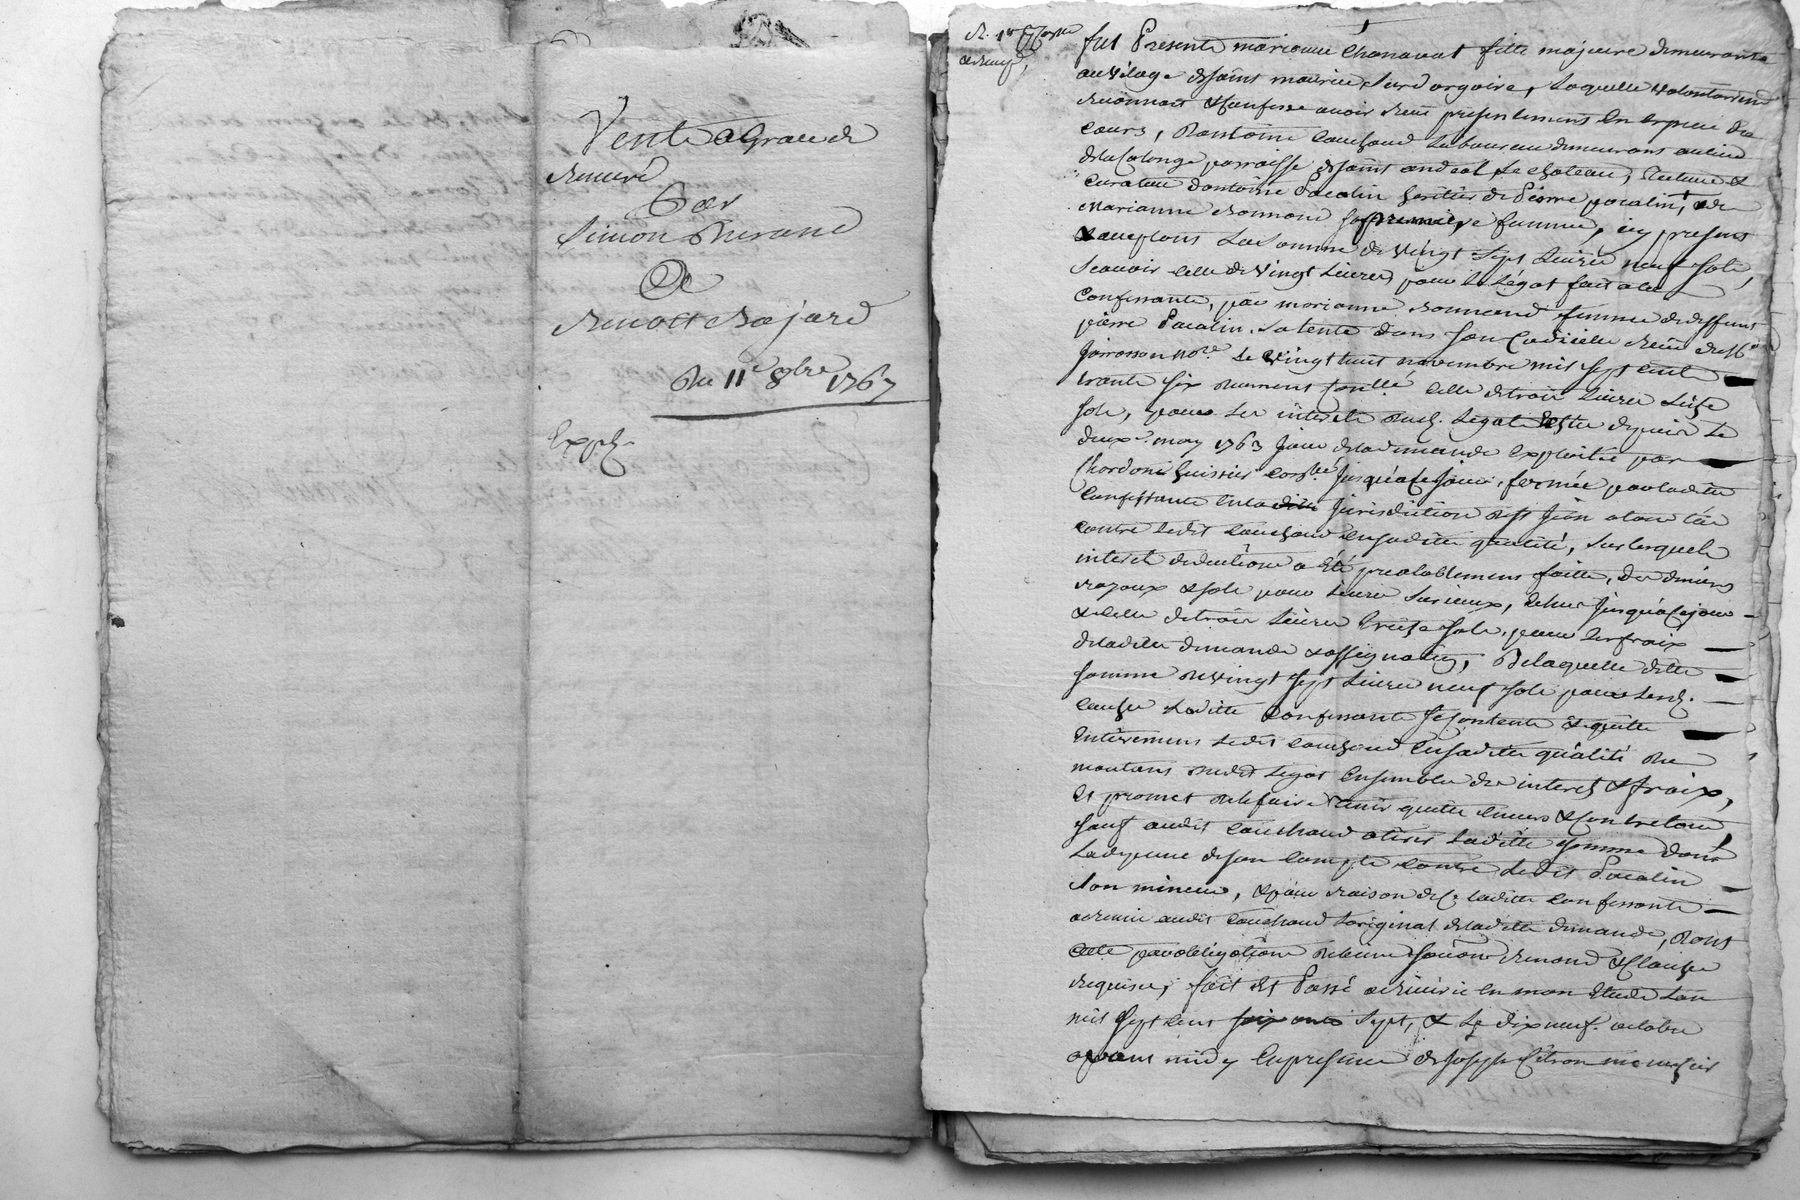 Vente a Grace de
Remeré
Par
Simon
A
Benoitt Bajard
Du 11e 8bre 1767
Exp.
fut Presente marianne Chanavat fille majeure demeurante
au vilage de saint maurice sur dargoire, laquelle volontairement
reconnoit & confesse avoir reçu presentement en espece du
cours, Dantoine Couchoud laboureur demeurant au lieu
dela Calonge parroisse de saint andeol le chateau, tuteur &
curateur dantoine Pacalin heritier de Pierre pacalin, & de
Marianne Bonnand sa premiere femme, icy present
& acceptant La somme de vingt sept livres neuf sols,
scavoir celle de vingt Livres pour le Légat fait a la
Confessante, par marianne Bonnand femme de deffunt
pierre Pacalin, sa tente dans son Codicille reçu de Me
Jarrosson Nore. Le vingt huit novembre mil sept cent
trante six dument Conllé. celle de trois Livres seize
sols, pour les interets dud. Legat echu depuis le
deux may 1763 jour dela demande Exploitée par
Chardon huissier jusqu'a ce jour, formée par ladite
Confessante en la jurisdiction
contre ledit Couchoud en sadite qualité, sur lesquels
interets deduction a été prealablement faitte, des deniers
royaux & sols pour Livre dicieux, echus jusqu'a ce jour
& celle de trois Livres treize sols, pour les fraix
deladite demande & assignation, De laquelle ditte
somme de vingt sept Livres neuf sols pour lesd.
causes Laditte Confessante se contente & quitte
Entierement ledit Couchoud en sadite qualité du
montant dudit Legat Ensemble des interets & fraix,
Et promet de le faire tenir quitte envers & contre tous,
sauf audit Couchoud a tirer laditte somme dans
La depense de son compte contre ledit Pacalin
son mineur, & pour raison de ce laditte Confessante
a remis audit Couchoud Loriginal deladitte demande, Dont
acte par obligations de biens soumon renond & Clauses
requises, fait Et Passé a Riverie en mon Etude Lan
mil sept cent soixante sept, & Le dix neuf octobre
avant midy En presence de Joseph menusier